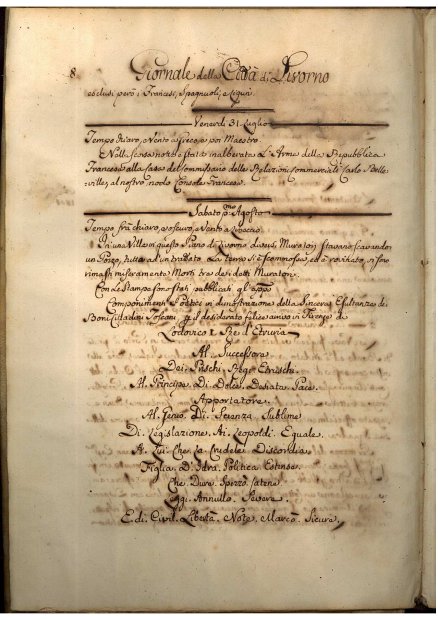 8 Giornale della Città di Livorno
esclusi però i Francesi, Spagnuoli, e Liguri
Venerdì 31 Luglio
Tempo chiaro, e Vento a Greco, e poi Maestro.
Nella scorsa notte è stata inalberata L'Arme della Repubblica
Francese alla casa del Commissario delle Relazioni Commerciali Carlo Belle-
ville, al nostro modo Console Francese.
Sabato pmo Agosto
Tempo frà chiaro, e oscuro, e Vento a Libeccio
In una Villa in questo Piano di Livorno diversi Muratori stavano scavando
un Pozzo, tutto ad un tratto La terra si è scommossa, ed è rovinata, e sono
rimasti miseramente Morti tre dei detti Muratori.
Con Le Stampe sono stati pubblicati gl'appo
Componimenti Poetici in dimostrazione della Sincera Esultanza dei
Boni Cittadini Toscani, p il desiderato felice arrivo in Firenze di
Lodovico I. Rè d'Etruria
Al Successore
Dei Prischi Regi Etruschi.
Al Principe Di Dolce Desiata Pace.
Apportatore.
Al Genio Di Scienza Sublime
Di Legislazione Ai Leopoldi Eguale.
A Lui Che La Crudele Discordia
Figlia D'Idra Politica Estinse.
Che Dure Spezzò Catene
Leggi Annullò Severe.
E di Civil Libertà Note Marcò Sicure.